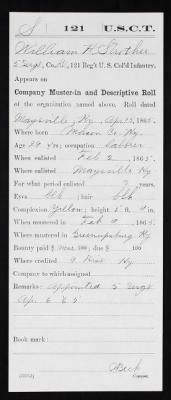 S 121 U.S.C.T.
William H. Strother
5 Sergt, Co. , 121 Reg't U. S. Col'd Infantry.
Appears on
Company Muster-in and Descriptive Roll
of the organization named above. Roll dated
Maysville, Ky. Apr. 25, 1865.
Where born Mason Co. Ky.
Age 29 y'rs; occupation Laborer
When enlisted Feb 2, 1865.
Where enlisted Maysville Ky
For what period enlisted years.
Eyes Blk; hair Blk
Complexion Yellow; height 5 ft. 9 in.
When mustered in Feb 2, 1865
Where mustered in Greenupsburg Ky
Bounty paid $ 100; due $ 100
Where credited 9 Dist Ky
Company to which assigned
Remarks: Appointed 5 Sergt
Apr 6 65
Book mark:
Copyist.